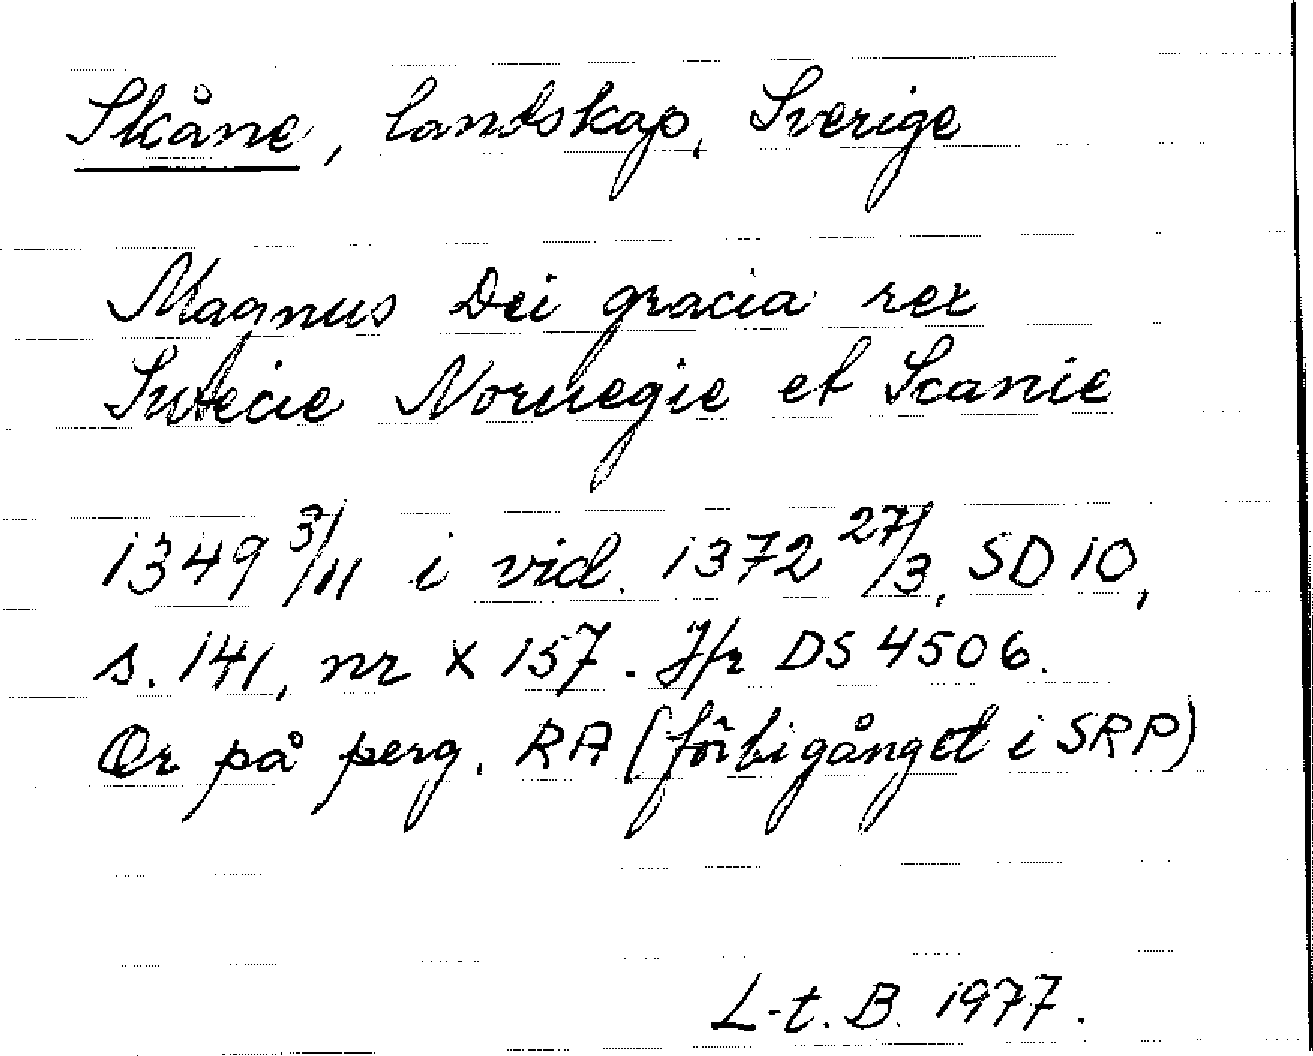 Skåne, landskap, Sverige
Magnus Dei gracia rex
Swecie Noruegie et Scanie
1349 3/11 i vid. 1372 27/3, SD 10,
s. 141, nr X 157. Jfr DS 4506.
Or på perg. RA (förbigånget i SRP)
L-t. B. 1977.